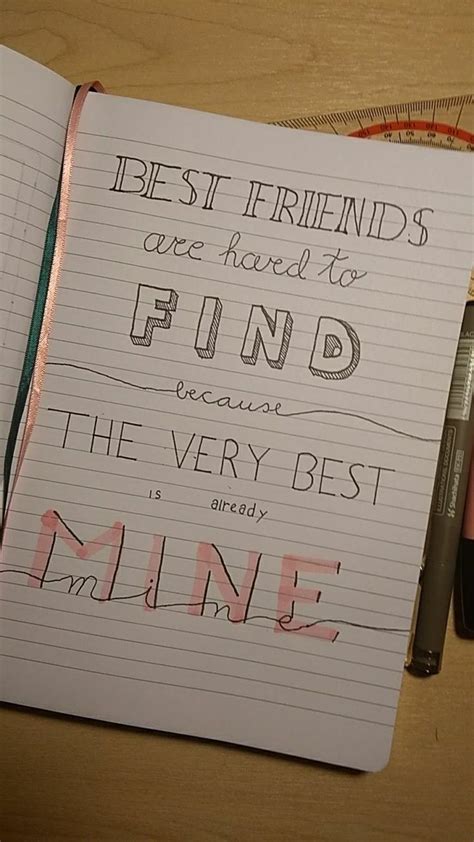 BEST FRIENDS
are hard to
FIND
because
THE VERY BEST
is already
MINE
mine